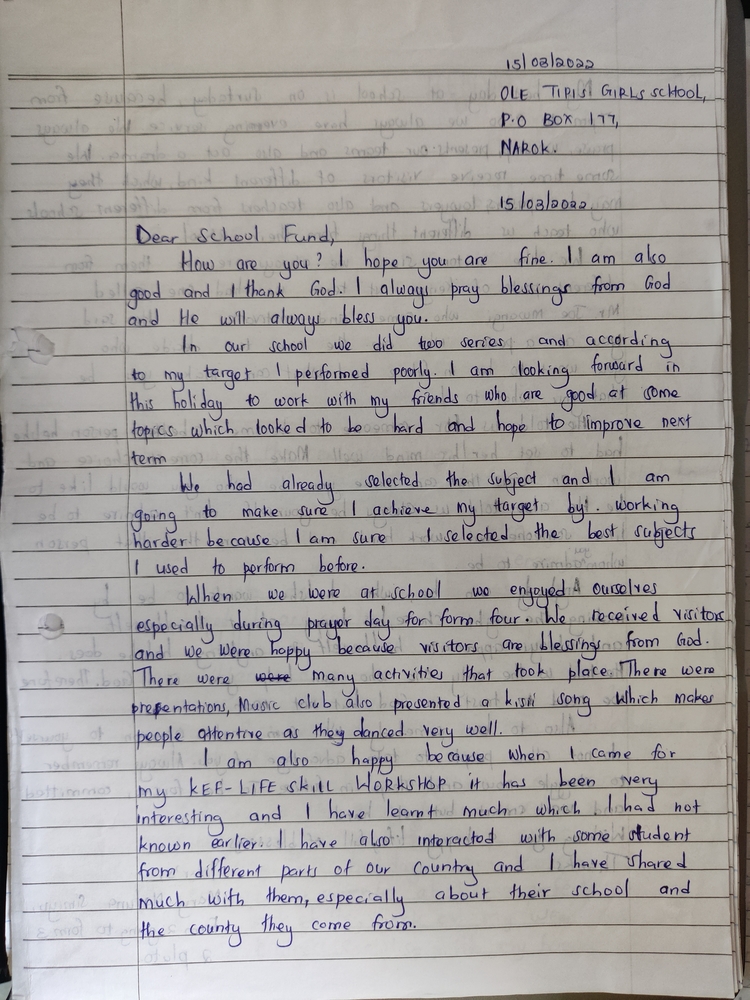 15/03/2022
OLE TIPIS GIRLS SCHOOL,
P.O BOX 177,
NAROK.
15/03/2022.
Dear School Fund,
How are you? I hope you are fine. I am also
good and I thank God. I always pray blessings from God
and He will always bless you.
In our school we did two series and according
to my target I performed poorly. I am looking forward in
this holiday to work with my friends who are good at some
topics which looked to be hard and hope to improve next
term
We had already selected the subject and I am
going to make sure I achieve my target by. working
harder because I am sure I selected the best subjects
I used to perform before.
When we were at school we enjoyed ourselves
especially during prayer day for form four. We received visitors
and we were happy because visitors are blessings from God.
There were were many activities that took place. There were
presentations, Music club also presented a kisii song which makes
people attentive as they danced very well.
I am also happy because when I came for
my KEF-LIFE SKILL WORKSHOP it has been very
interesting and I have learnt much which I had not
known earlier. I have also interacted with some student
from different parts of our Country and I have shared
much with them, especially about their school and
the county they come from.